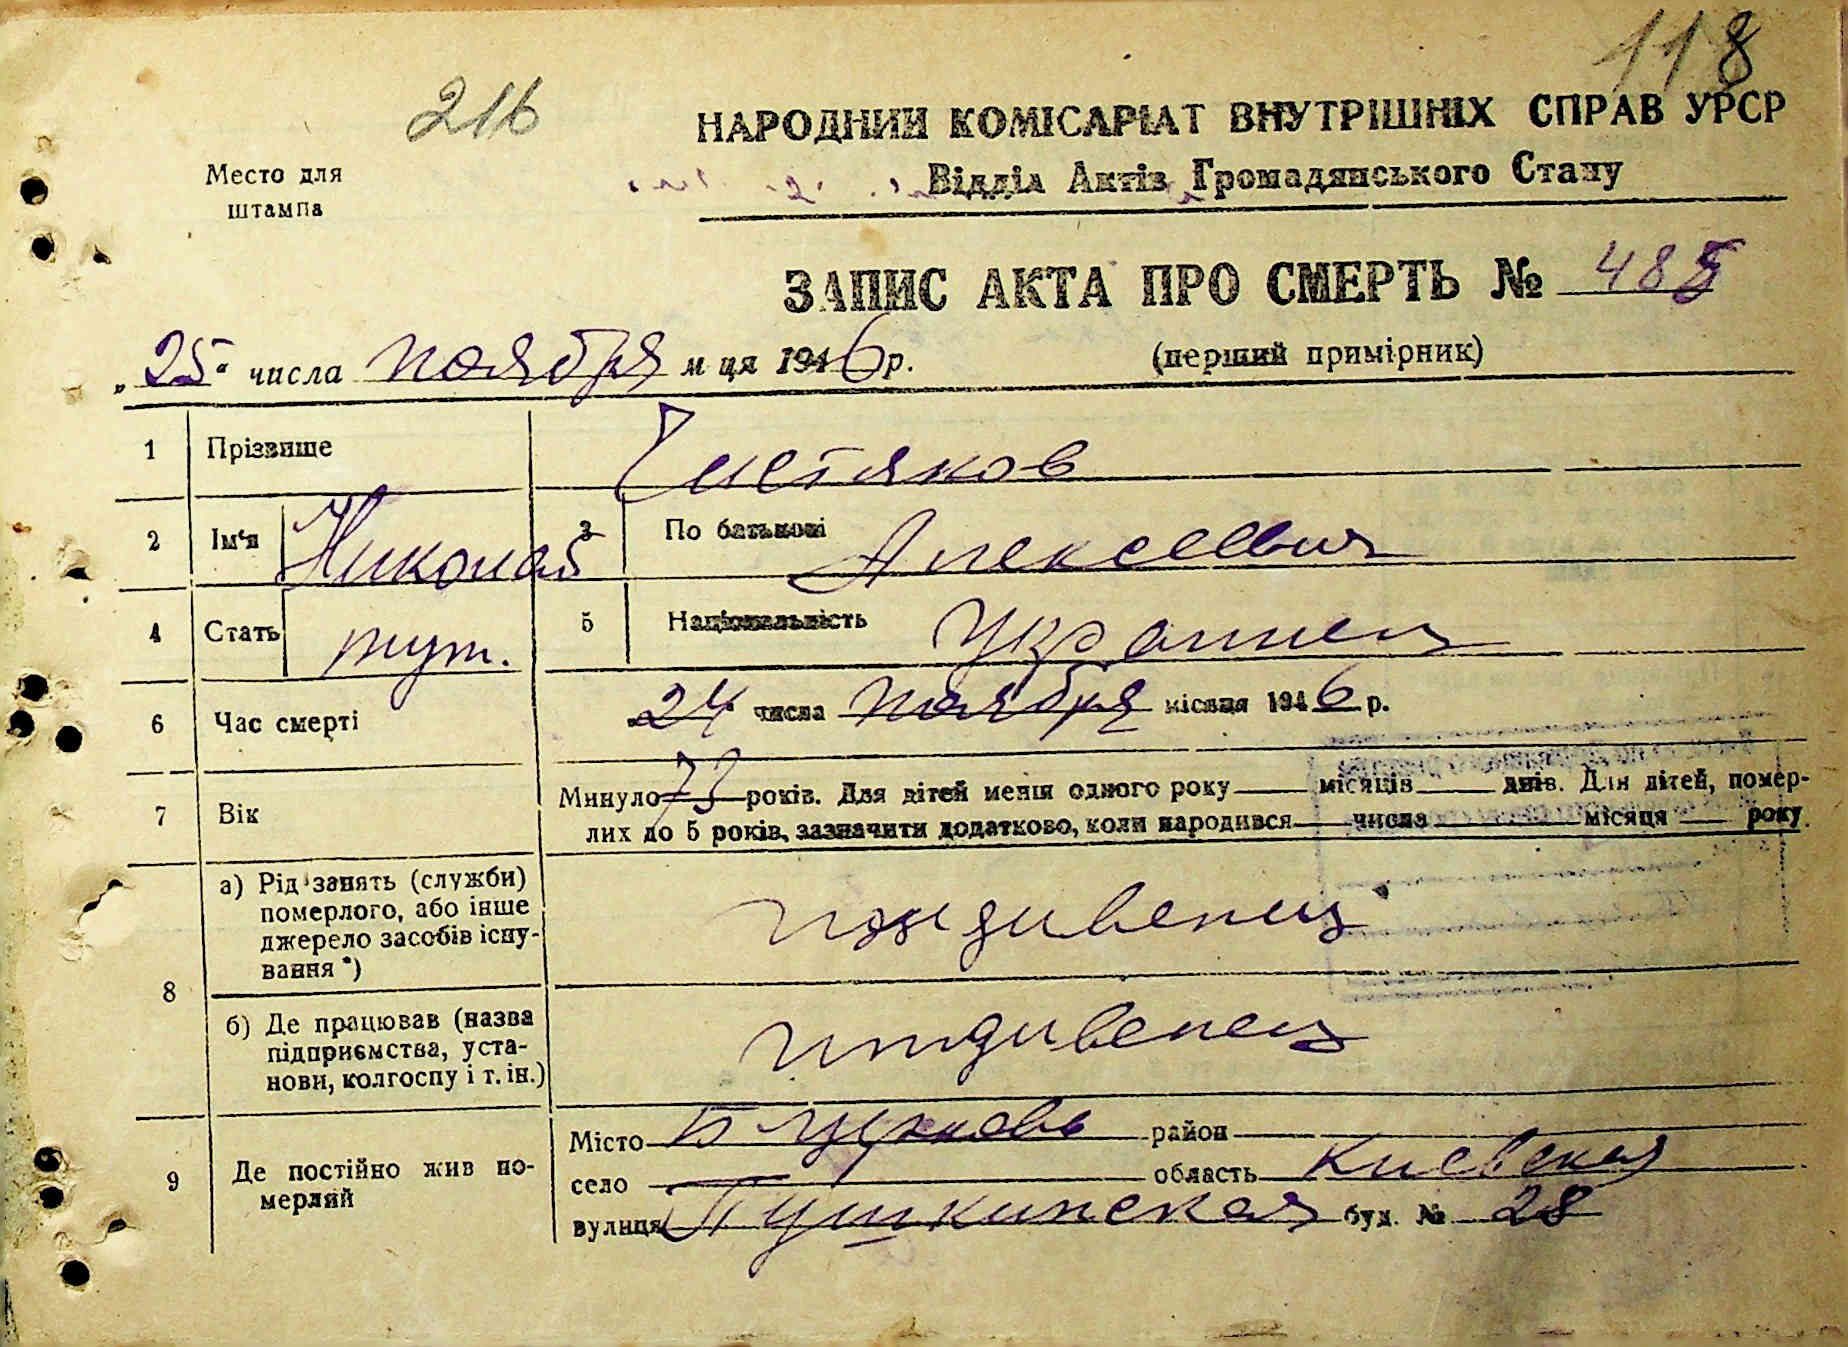 118
216
НАРОДНИЙ КОМІСАРІАТ ВНУТРІШНІХ СПРАВ УРСР
Место для
штампа
Відділ Актів Громадянського Стану
ЗАПИС АКТА ПРО СМЕРТЬ № 485
„25" числа ноября м ця 1946 р.
(перший примірник)
1 Прізвище Чистяков
2 Ім'я Николай 3 По батькові Алексеевич
4 Стать муж. 5 Національність Украинец
6 Час смерті „24" числа ноября місяця 1946 р.
7 Вік Минуло 73 років. Для дітей менш одного року місяців днів. Для дітей, помер-
лих до 5 років, зазначити додатково, коли народився числа місяця року.
8 а) Рід занять (служби)
померлого, або інше
джерело засобів існу-
вання *)
иждивенец
б) Де працював (назва
підприємства, уста-
нови, колгоспу і т. ін.)
иждивенец
9 Де постійно жив по-
мерлий
Місто Б Церковь район
село область Киевская
вулиця Пушкинская буд. № 28